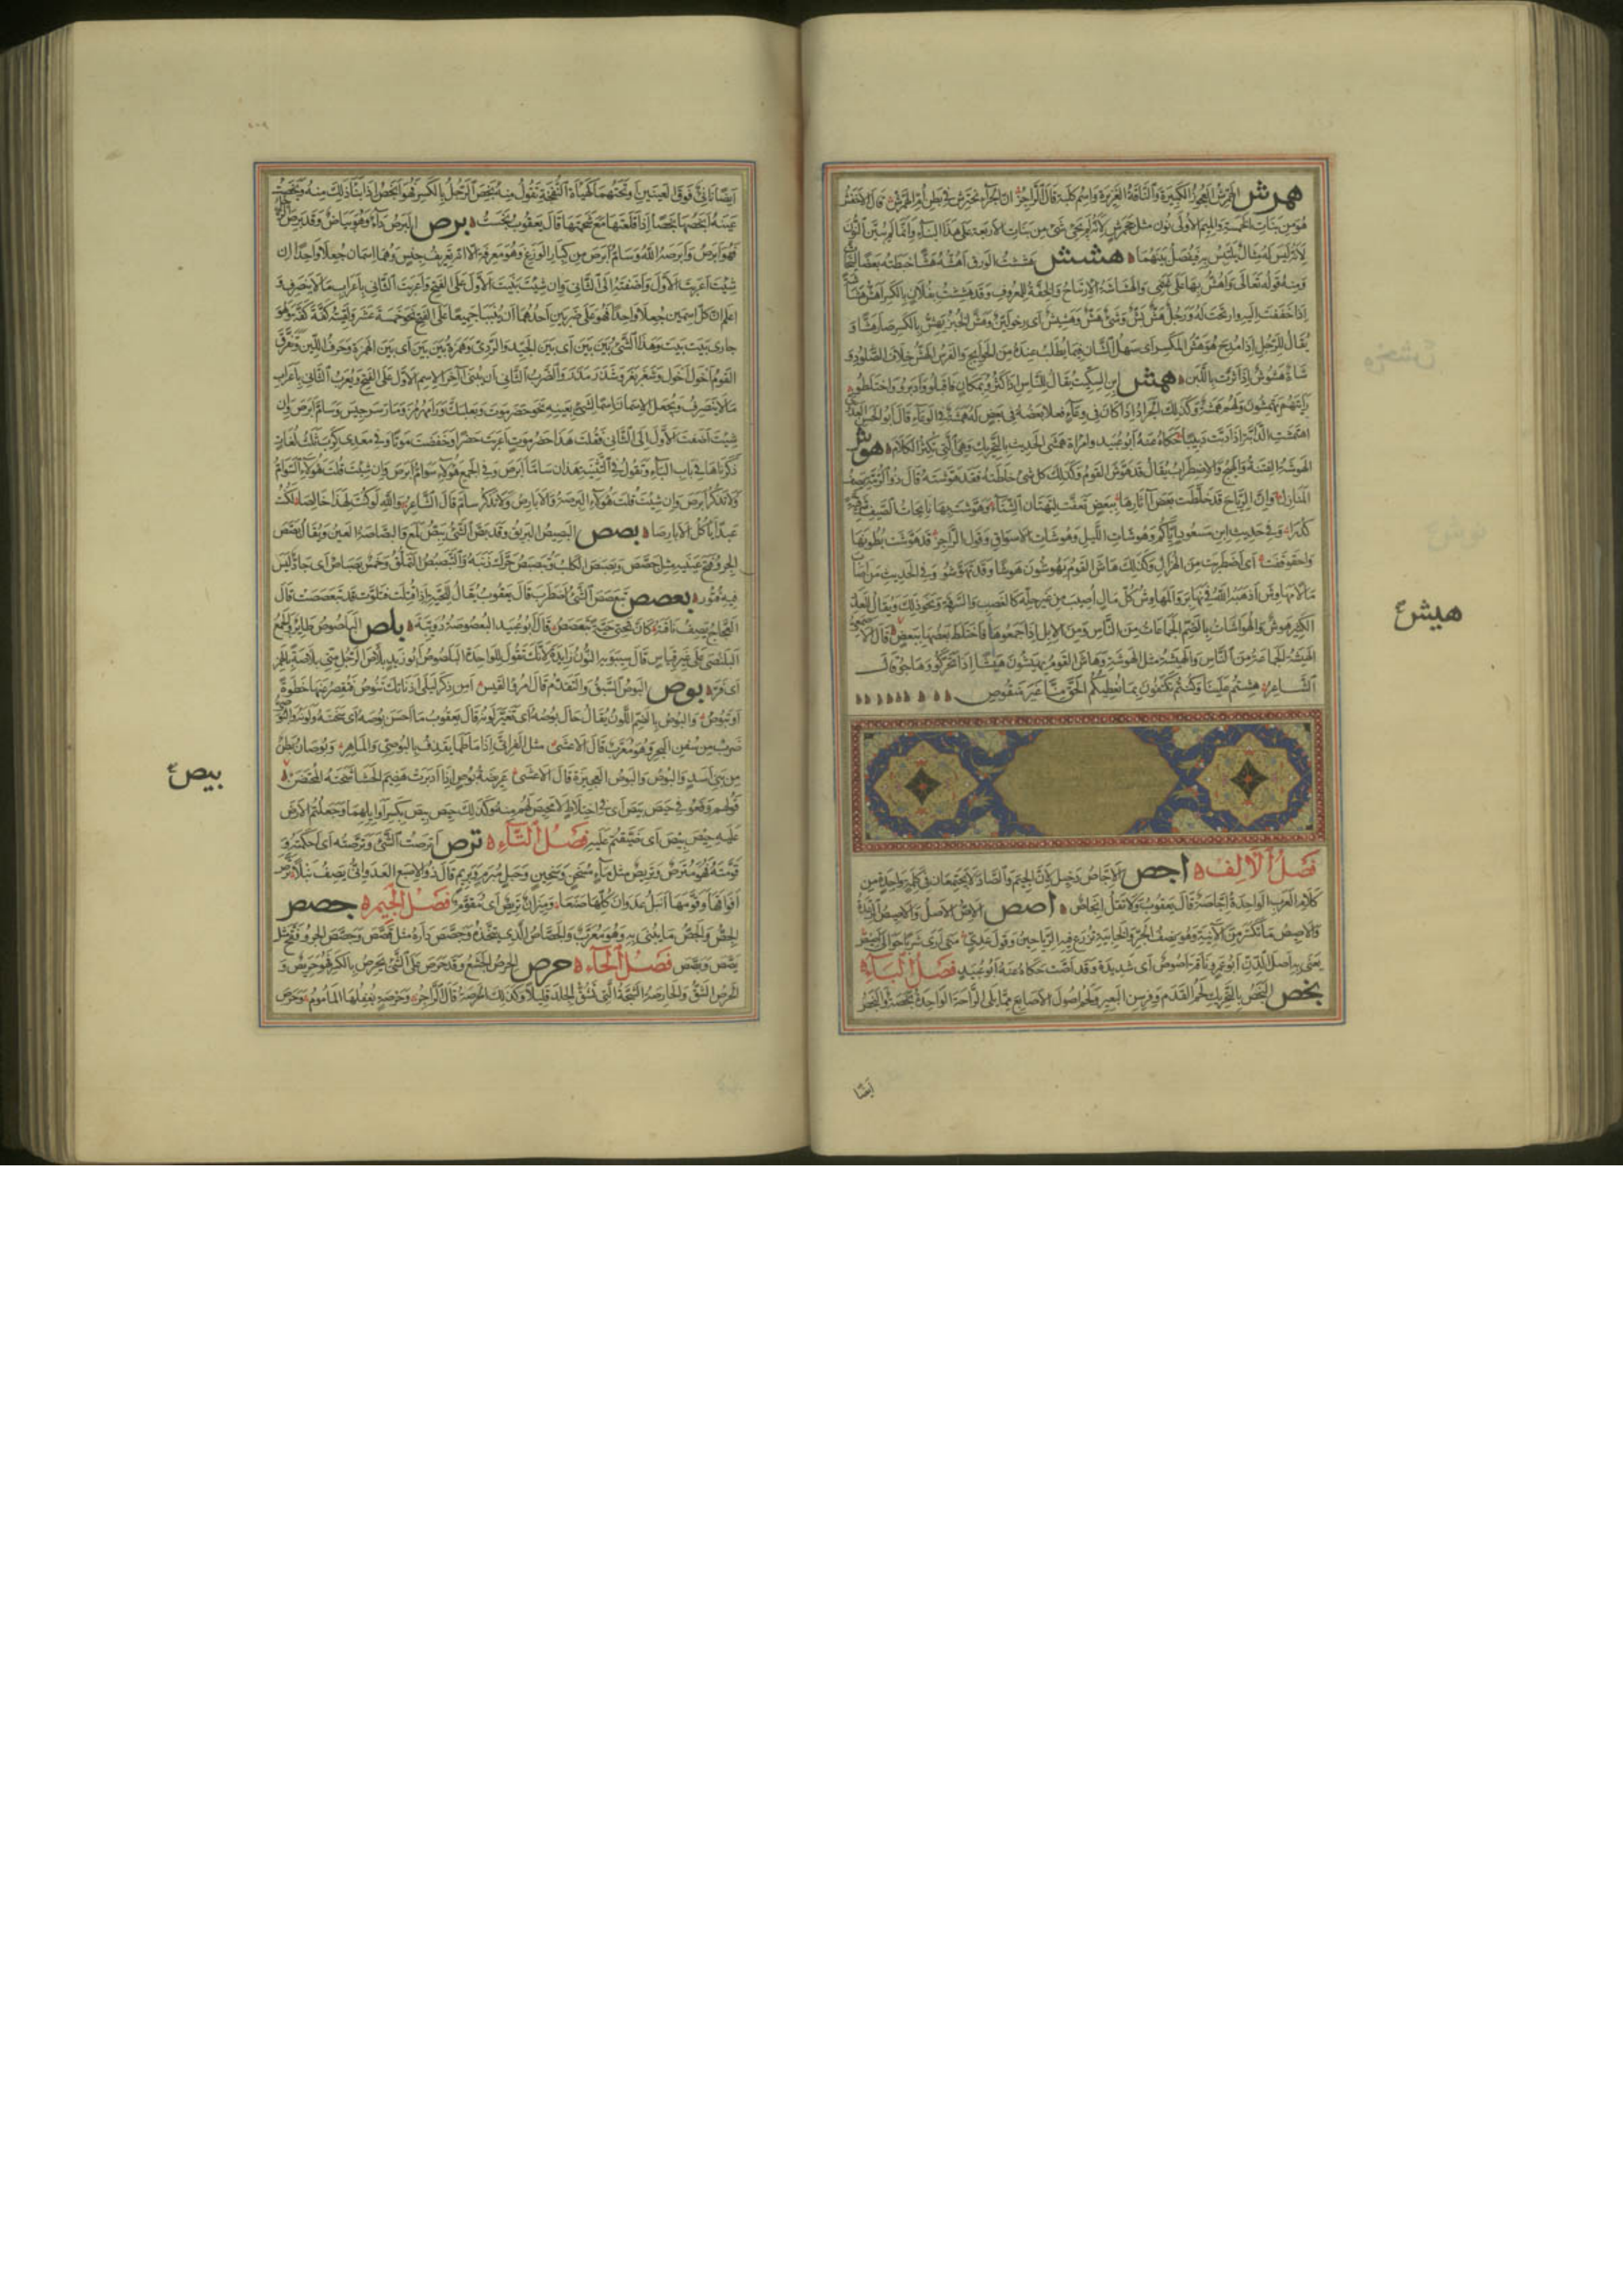 همرش الهمرش العجوز الكبيرة والناقة الغزيرة واسم كلبة قال الراجز ان الجراء تخترش في بطن ام الهمرش قال الاخفش
هو من بنات الخمسة والميم الاولى نون مثل جحمرش لانه لم يجئ شئ من بنات الاربعة على هذا البناء وانما لم تبين النون
لانه ليس له مثال يلتبس به فيفصل بينهما هشش هششت الورق اهشه هشا خبطته بعصا ليتحات
ومنه قوله تعالى واهش بها على غنمي والهشاشة الارتياح والخفة للمعروف وقد هششت بفلان بالكسر اهش هشاشة
اذا خففت اليه وارتحت له ورجل هش بش وشئ هش وهشيش اي رخو لين وهش الخبز يهش بالكسر صار هشا و
يقال للرجل اذا مدح هو هش المكسر اي سهل الشان فيما يطلب عنده من الحوايج والفرس الهش خلاف الصلود و
شاة هشوش اذا ثرت باللبن همش ابن السكيت يقال للناس اذا كثروا بمكان فاقبلوا وادبروا واختلطوا
رايتهم يهتمشون ولهم همشة وكذلك الجراد اذا كان في وعاء فغلا بعضه في بعض له همشة في الوعاء قال ابو الحسن العدوي
اهتمشت الدابة اذا دبت دبيبا حكاه عنه ابو عبيد وامراة همشى الحديث بالتحريك وهي التي تكثر الكلام هوش
الهوشة الفتنة والهيج والاضطراب يقال قد هوش القوم وكذلك كل شئ خلطته فقد هوشته قال ذو الرمة يصف
المنازل وان الرياح قد خلطت بعض اثارها ببعض تعفت لتهتان الشتاء وهوشت بها نايجات الصيف شرقية
كدرا وفي حديث ابن مسعود اياكم وهوشات الليل وهوشات الاسواق وقول الراجز قد هوشت بطونها
واحقوقفت اي اضطربت من الهزال وكذلك هاش القوم يهوشون هوشا وقد تهوشوا وفي الحديث من اصاب
مالا من مهاوش اذهبه الله في نهابر والمهاوش كل مال اصيب من غير حله كالغصب والسرقة ونحو ذلك ويقال للعدد
الكثير هوش والهواشات بالضم الجماعات من الناس ومن الابل اذا جمعوها فاختلط بعضها ببعض قال الاصمعي
الهيشة الجماعة من الناس والهيشة مثل الهوشة وهاش القوم يهيشون هيشا اذا تحركوا وهاجوا قال
الشاعر هشتم علينا وكنتم تكتفون بما نعطيكم الحق منا غير منقوص
هيش
فصل الالف اجص الاجاص دخيل لان الجيم والصاد لا يجتمعان في كلمة واحدة من
كلام العرب الواحدة اجاصة قال يعقوب ولا تقل انجاص اصص الاص الاصل والاصيص الرعدة
والاصيص ما تكسر من الآنية وهو نصف الجر والخابية تزرع فيه الرياحين وقول عدي متى ارى شربا حوالي اصيص
يعني به اصل الدن ابو عمرو ناقة اصوص اي شديدة وقد اصت حكاه عنه ابو عبيد فصل الباء
بخص البخص بالتحريك لحم القدم وفرسن البعير ولحم اصول الاصابع مما يلي الراحة الواحدة بخصة والبخص
ايضا
ايضا ناتئ فوق العينين او تحتهما كهيأة النفخة تقول منه بخص الرجل بالكسر فهو ابخص اذا نتأ ذلك منه وبخصت
عينه ابخصها بخصا اذا قلعتها مع شحمتها قال يعقوب ولا تقل بخست برص البرص داء وهو بياض وقد برص الرجل
فهو ابرص وابرصه الله وسام ابرص من كبار الوزغ وهو معرفة الا انه تعريف جنس وهما اسمان جعلا واحدا ان
شئت اعربت الاول واضفته الى الثاني وان شئت بنيت الاول على الفتح واعربت الثاني باعراب ما لا ينصرف و
اعلم ان كل اسمين جعلا واحدا فهو على ضربين احدهما ان يبنيا جميعا على الفتح نحو خمسة عشر ولقيته كفة كفة وهو
جاري بيت بيت وهذا الشئ بين بين اي بين الجيد والردئ وهمزة بين بين اي بين الهمزة وحرف اللين وتفرق
القوم اخول اخول وشغر بغر وشذر مذر والضرب الثاني ان يبنى آخر الاسم الاول على الفتح ويعرب الثاني باعراب
ما لا ينصرف ويجعل الاسمان اسما لشئ بعينه نحو حضرموت وبعلبك ورامهرمز ومارسرجس وسام ابرص وان
شئت اضفت الاول الى الثاني فقلت هذا حضرموت اعربت حضرا وخفضت موتا وفي معدي كرب ثلث لغات
ذكرناها في باب الباء وتقول في التثنية هذان ساما ابرص وفي الجمع هؤلاء سوام ابرص وان شئت قلت هؤلاء السوام
ولا تذكر ابرص وان شئت قلت هؤلاء البرصة والابارص ولا تذكر سام قال الشاعر والله لو كنت لهذا خالصا لكنت
عبدا آكل الابارصا بصص البصيص البريق وقد بص الشئ يبص لمع والبصاصة العين ويقال بصص
الجرو فتح عينيه مثل جصص وبصبص الكلب وتبصبص حرك ذنبه والتبصبص التملق وخمس بصباص اي جاد ليس
فيه فتور بعصص تبعصص الشئ اضطرب قال يعقوب يقال للحية اذا قتلت فتلوت قد تبعصصت قال
العجاج يصف ناقته كان تحتي حية تبعصص قال ابو عبيد البعصوصة دويبة بلص البلصوص طاير والجمع
البلنصى على غير قياس قال سيبويه النون زايدة لانك تقول للواحدة البلصوص ابو زيد بلاص الرجل مني بلاصة بالهمز
اي فر بوص البوص السبق والتقدم قال امرؤ القيس امن ذكر ليلى اذ ناتك تنوص فتقصر عنها خطوة
او تبوص والبوص بالضم اللون يقال حال بوصه اي تغير لونه قال يعقوب ما احسن بوصه اي سحنته ولونه والبوصي
ضرب من سفن البحر وهو معرب قال الاعشى مثل الفراتي اذا ما طما يقذف بالبوصي والماهر وبوصان بطن
من بني اسد والبوص والبوص العجيزة قال الاعشى عريضة بوص اذا ادبرت هضيم الحشا شختة المحتضن
بيص
قولهم وقعوا في حيص بيص اي في اختلاط لا محيص لهم منه وكذلك حيص بيص بكسر اوايلهما وجعلتم الارض
عليه حيص بيص اي ضيقتم عليه فصل التاء ترص اترصت الشئ وترصته اي احكمته و
قومته فهو مترص وتريص مثل ماء مسخن وسخين وحبل مبرم وبريم قال ذو الاصبع العدواني يصف نبلا ترص
افواقها وقومها انبل عدوان كلها صنعا وميزان تريص اي مقوم فصل الجيم جصص
الجص والجص ما يبنى به وهو معرب والجصاص الذي يتخذه وجصص داره مثل قصص وجصص الجرو وفتح مثل
بصص وبصص فصل الحاء حرص الحرص الجشع وقد حرص على الشئ يحرص بالكسر فهو حريص و
الحرص الشق والحارصة الشجة التي تشق الجلد قليلا وكذلك الحرصة قال الراجز وحرصة يغفلها المأموم وحرص